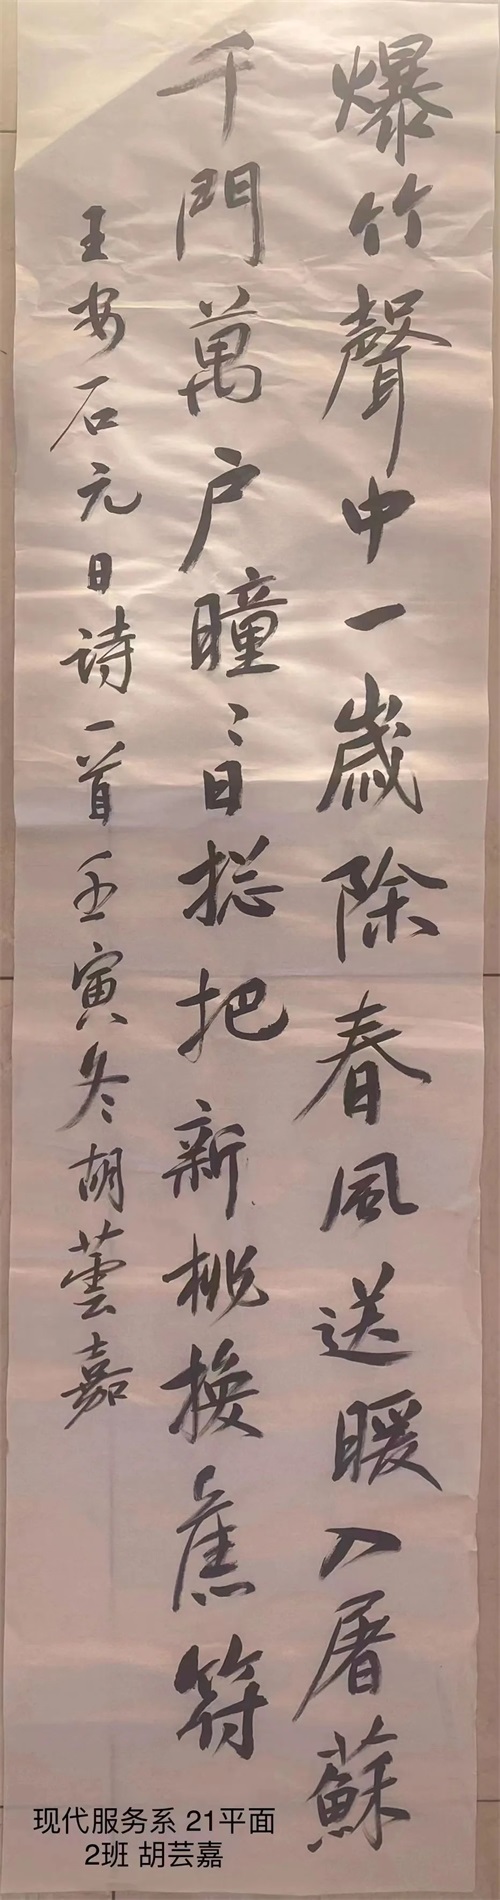 爆竹聲中一歲除春風送暖入屠蘇
千門萬户曈〻日揔把新桃換舊符
王安石元日诗一首壬寅冬胡蕓嘉
现代服务系 21平面
2班 胡芸嘉